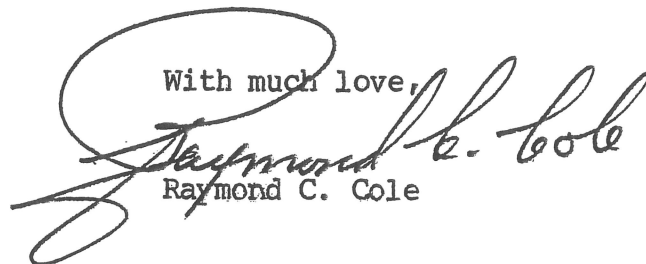 With much love,
Raymond C. Cole
Raymond C. Cole